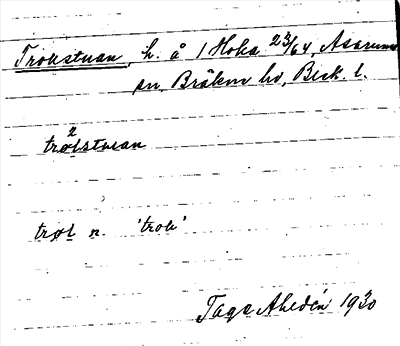 Trokstuan, h. å 1 Hoka 23/64, Asarums
sn, Bräkne hd, Blek. l.
2
trɷlstuan
trɷl n. 'trok'
Tage Ahldén 1930